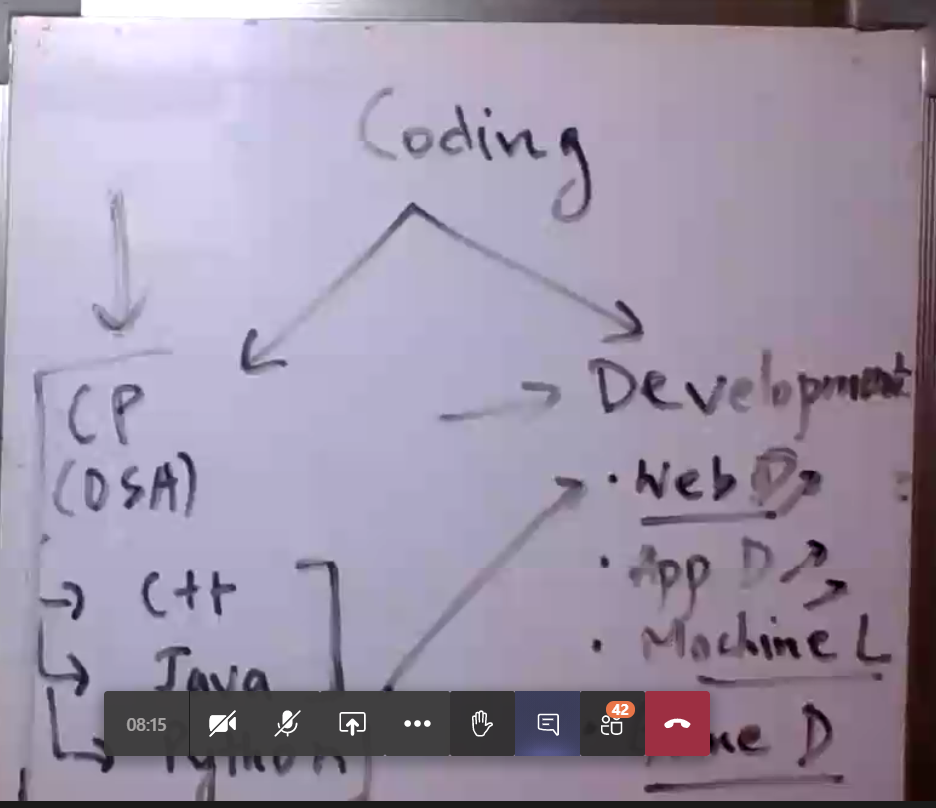 Coding
CP
(DSA)
C++
Java
Python
Development
• Web D
• App D
• Machine L
D
08:15
42